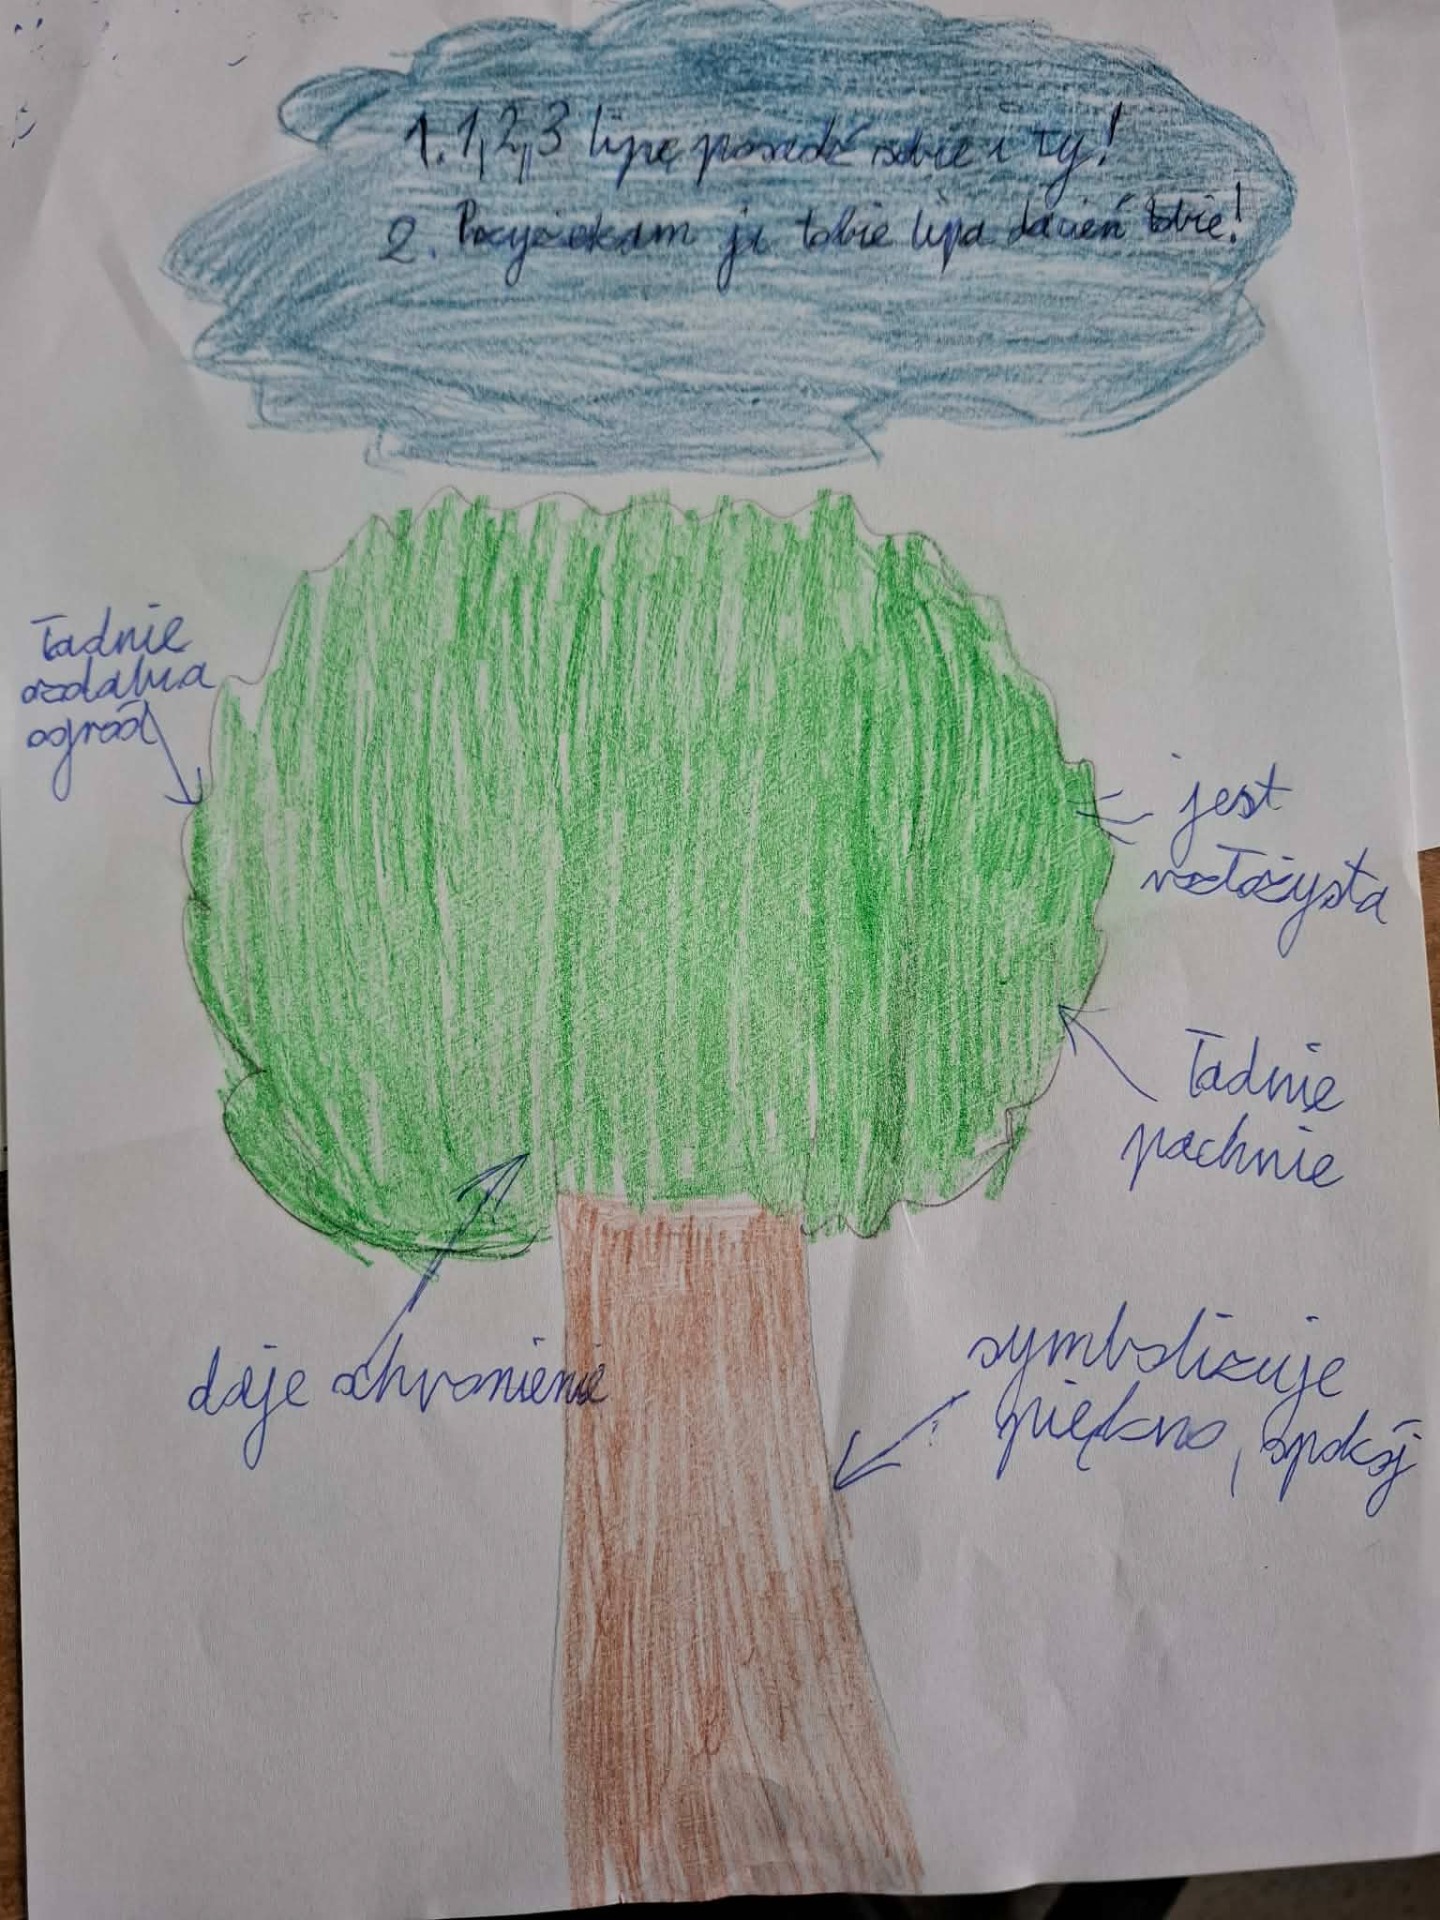 1. 1,2,3 lipę posadź sobie i ty!
2. ja tobie lipa da cień tobie!
Ładnie
ozdabia
ogród
jest
rozłożysta
Ładnie
pachnie
daje schronienie
symbolizuje
piękno, spokój